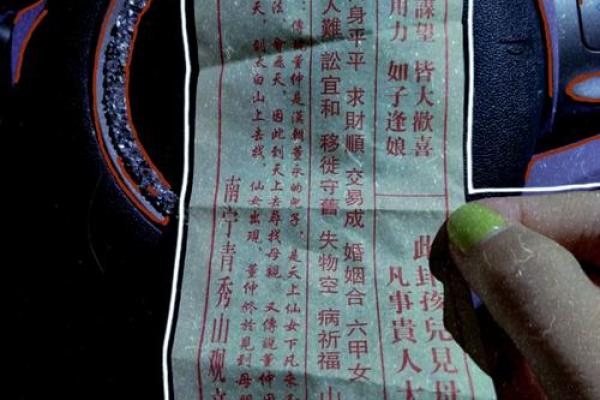 謀望 皆大歡喜
用力 如子逢娘
此卦孩兒見母
凡事貴人大
身平平 求財順 交易成 婚姻合 六甲女
人難 訟宜和 移徙守舊 失物空 病祈福 山
傳說董仲是漢朝董永的兒子，是天上仙女下凡來
法，會飛天，因此到天上去尋找母親，又傳說董仲
天，到太白山上去找，仙女出現，董仲終於見到母
南宁青秀山观